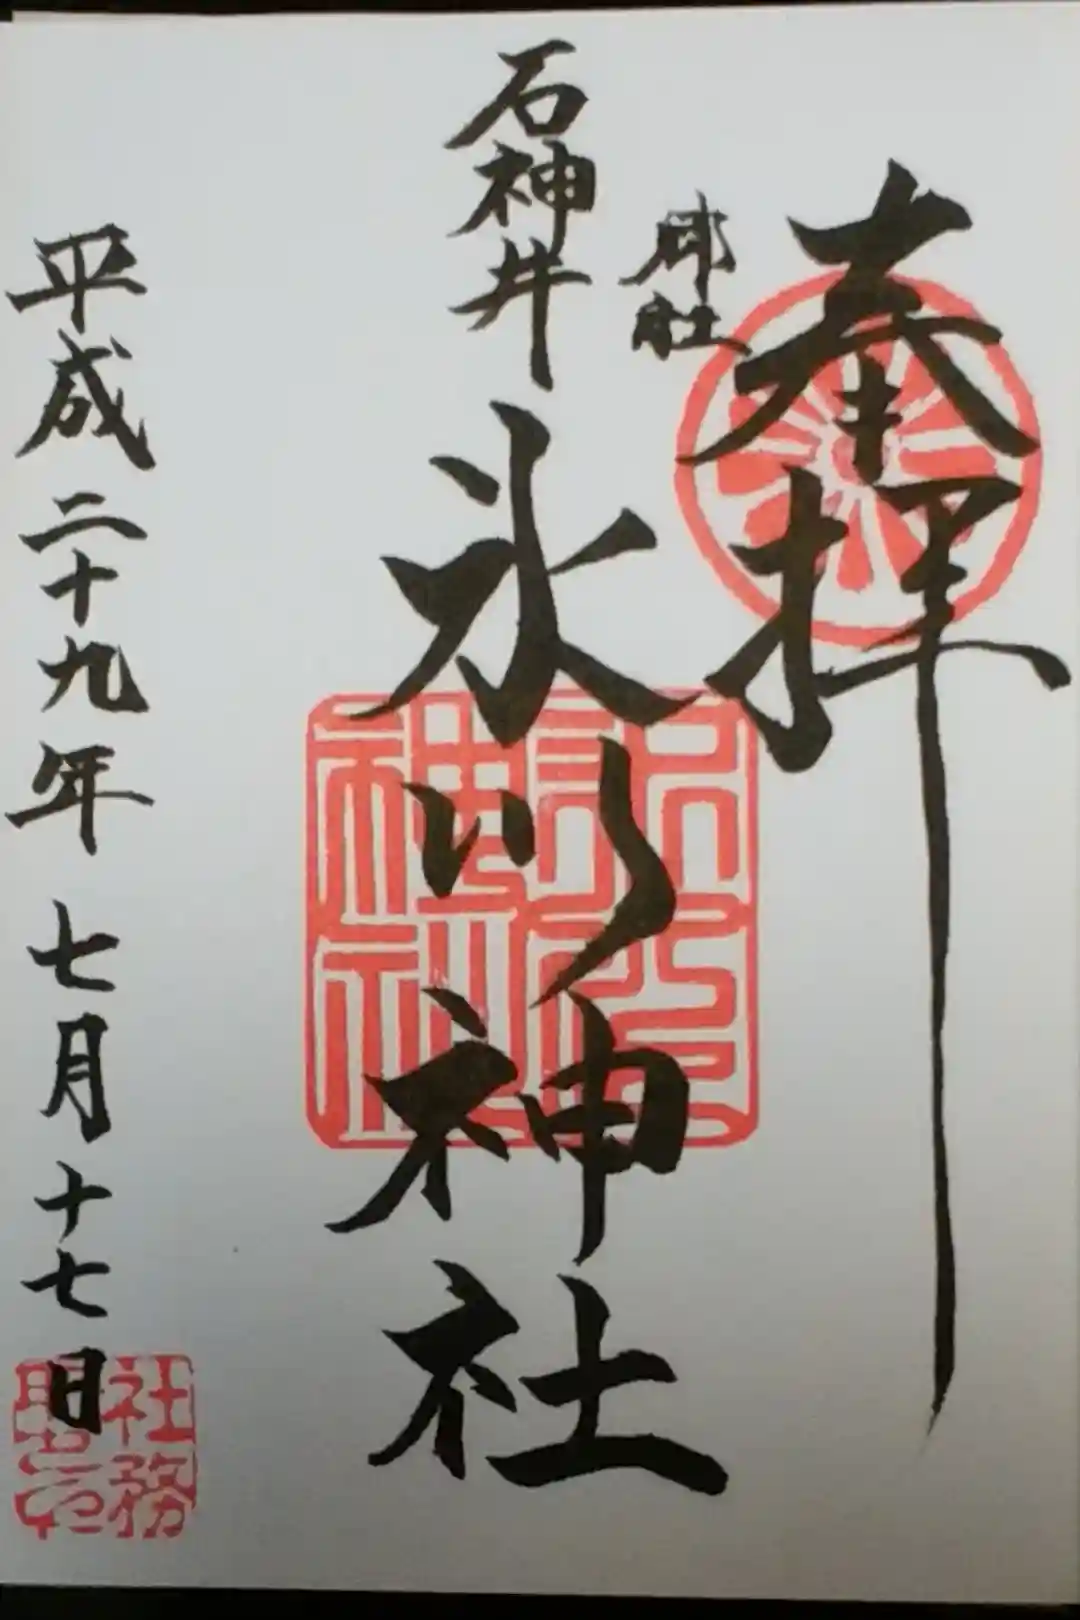 奉拝
郷社
石神井
氷川神社
平成二十九年七月十七日
社務